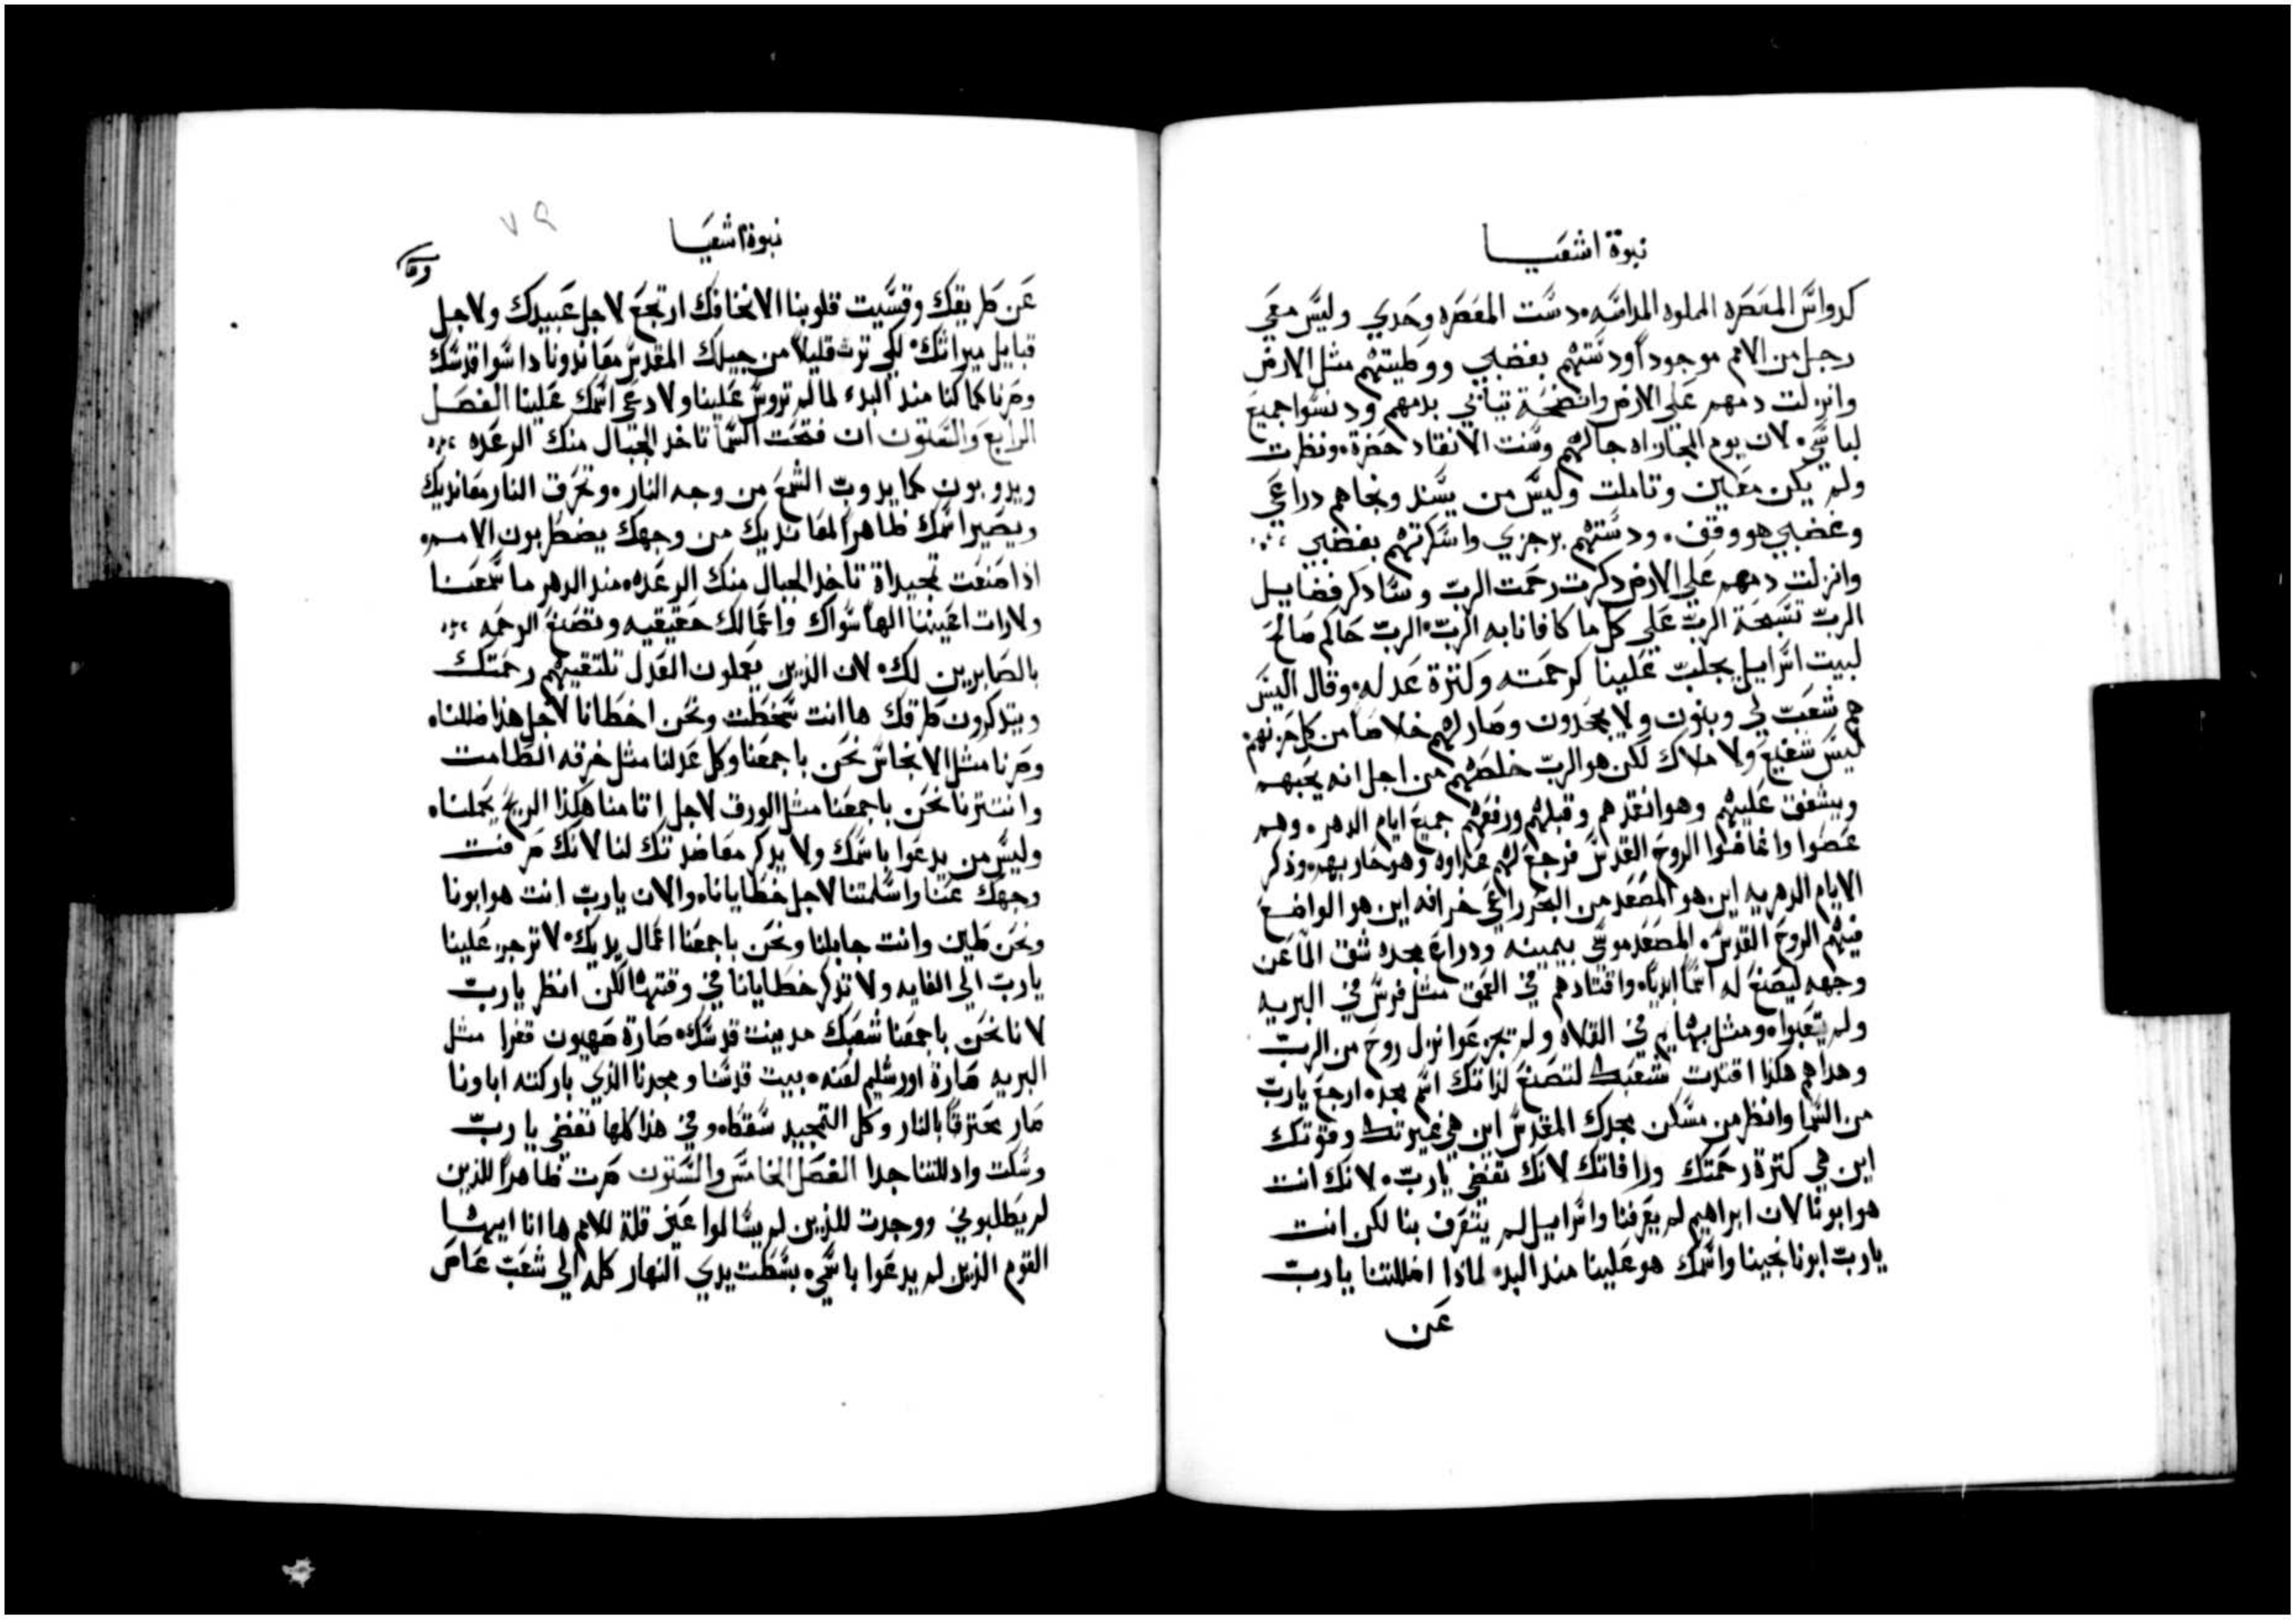 نبوة اشعيا
كدواس المعصره المملوه المداسه دست المعصره وحدي وليس معي
رجل من الامم موجوداً ودستهم بغضبي ووطيتهم مثل الارض
وانزلت دمهم علي الارض وانضحة تيابي بدمهم ودنسوا جميع
لباسي لان يوم المجازاه جا لهم وسنت الانقاد حضرة ونظرت
ولم يكن معين وتاملت وليس من يسند ونجاهم دراعي
وغضبي هو وقف ودستهم برجزي واسكرتهم بغضبي
وانزلت دمهم علي الارض دكرت رحمت الرب وسادكر فضايل
الرب تسبحة الرب علي كل ما كافانا به الرب الرب حاكم صالح
لبيت اسراييل يجلب علينا كرحمته وكترة عدله وقال اليس
هم شعب لي وبنون ولا يجحدون وصار لهم خلاصاً من كل حزنهم
ليس شفيع ولا ملاك لكن هو الرب خلصهم من اجل انه يحبهم
ويشفق عليهم وهو انقدهم وقبلهم ورفعهم جميع ايام الدهر وهم
عصوا واغاضوا الروح القدس فرجع لهم عداوه وهو حاربهم ودكر
الايام الدهريه اين هو المصعد من البحر راعي خرافه اين هو الواضع
فيهم الروح القدس المصعد موسي بيمينه ودراع مجده شق الما عن
وجهه ليصنع له اسماً ابدياً واقتادهم في العمق مثل فرس في البريه
ولم يتعبوا ومثل بهايم في الفلاه ولم تجزعوا نزل روح من الرب
وهداهم هكذا اقتدت شعبك لتصنع لذاتك اسم مجده ارجع يا رب
من السما وانظر من مسكن مجدك المقدس اين هي غيرتك وقوتك
اين هي كترة رحمتك ورافاتك لانك تغضي يا رب لانك انت
هو ابونا لان ابراهيم لم يعرفنا واسراييل لم يتعرف بنا لكن انت
يا رب ابونا نجينا واسمك هو علينا مند البدء لمادا اضللتنا يا رب
عن
٧٩
نبوة اشعيا
عن طريقك وقسيت قلوبنا الا نخافك ارتجع لاجل عبيدك ولاجل
قبايل ميراتك لكي نرت قليلاً من جبلك المقدس معاندونا داسوا قدسك
وصرنا كما كنا مند البدء لما لم تروس علينا ولا دعي اسمك علينا الفصل
الرابع والستون ان فتحت السما تاخد الجبال منك الرعده
ويدوبون كما يدوب الشمع من وجه النار وتحرق النار معانديك
ويصير اسمك ظاهراً لمعانديك من وجهك يضطربون الامم
ادا صنعت تمجيداة تاخد الجبال منك الرعده مند الدهر ما سمعنا
ولا رات اعيننا الهاً سواك واعمالك حقيقيه وتصنع الرحمه
بالصابرين لك لان الذين يعملون العدل تلتقيهم رحمتك
ويتدكرون طرقك ها انت سخطت ونحن اخطانا لاجل هذا ضللناه
وصرنا مثل الانجاس نحن باجمعنا وكل عدلنا مثل خرقه الطامت
وانتترنا نحن باجمعنا مثل الورق لاجل اتامنا هكذا الريح يحملناه
وليس من يدعوا باسمك ولا يدكر معاضدتك لنا لانك صرفت
وجهك عنا واسلمتنا لاجل خطايانا والان يا رب انت هو ابونا
ونحن طين وانت جابلنا ونحن باجمعنا اعمال يديك لا ترجز علينا
يا رب الي الغايه ولا تدكر خطايانا في وقتها لكن انظر يا رب
لاننا نحن باجمعنا شعبك مدينت قدسك صارة صهيون قفرا مثل
البريه صارة اورشليم لعنه بيت قدسنا ومجدنا الذي باركته اباونا
صار محترقاً بالنار وكل التمجيد سقط وفي هذا كلها تغضي يا رب
وسكت وادللتنا جدا الفصل الخامس والستون صرت ظاهراً للذين
لم يطلبوني ووجدت للذين لم يسالوا عني قلة للامم ها انا ايها
القوم الذين لم يدعوا باسمي بسطت يدي النهار كله الي شعب عاص